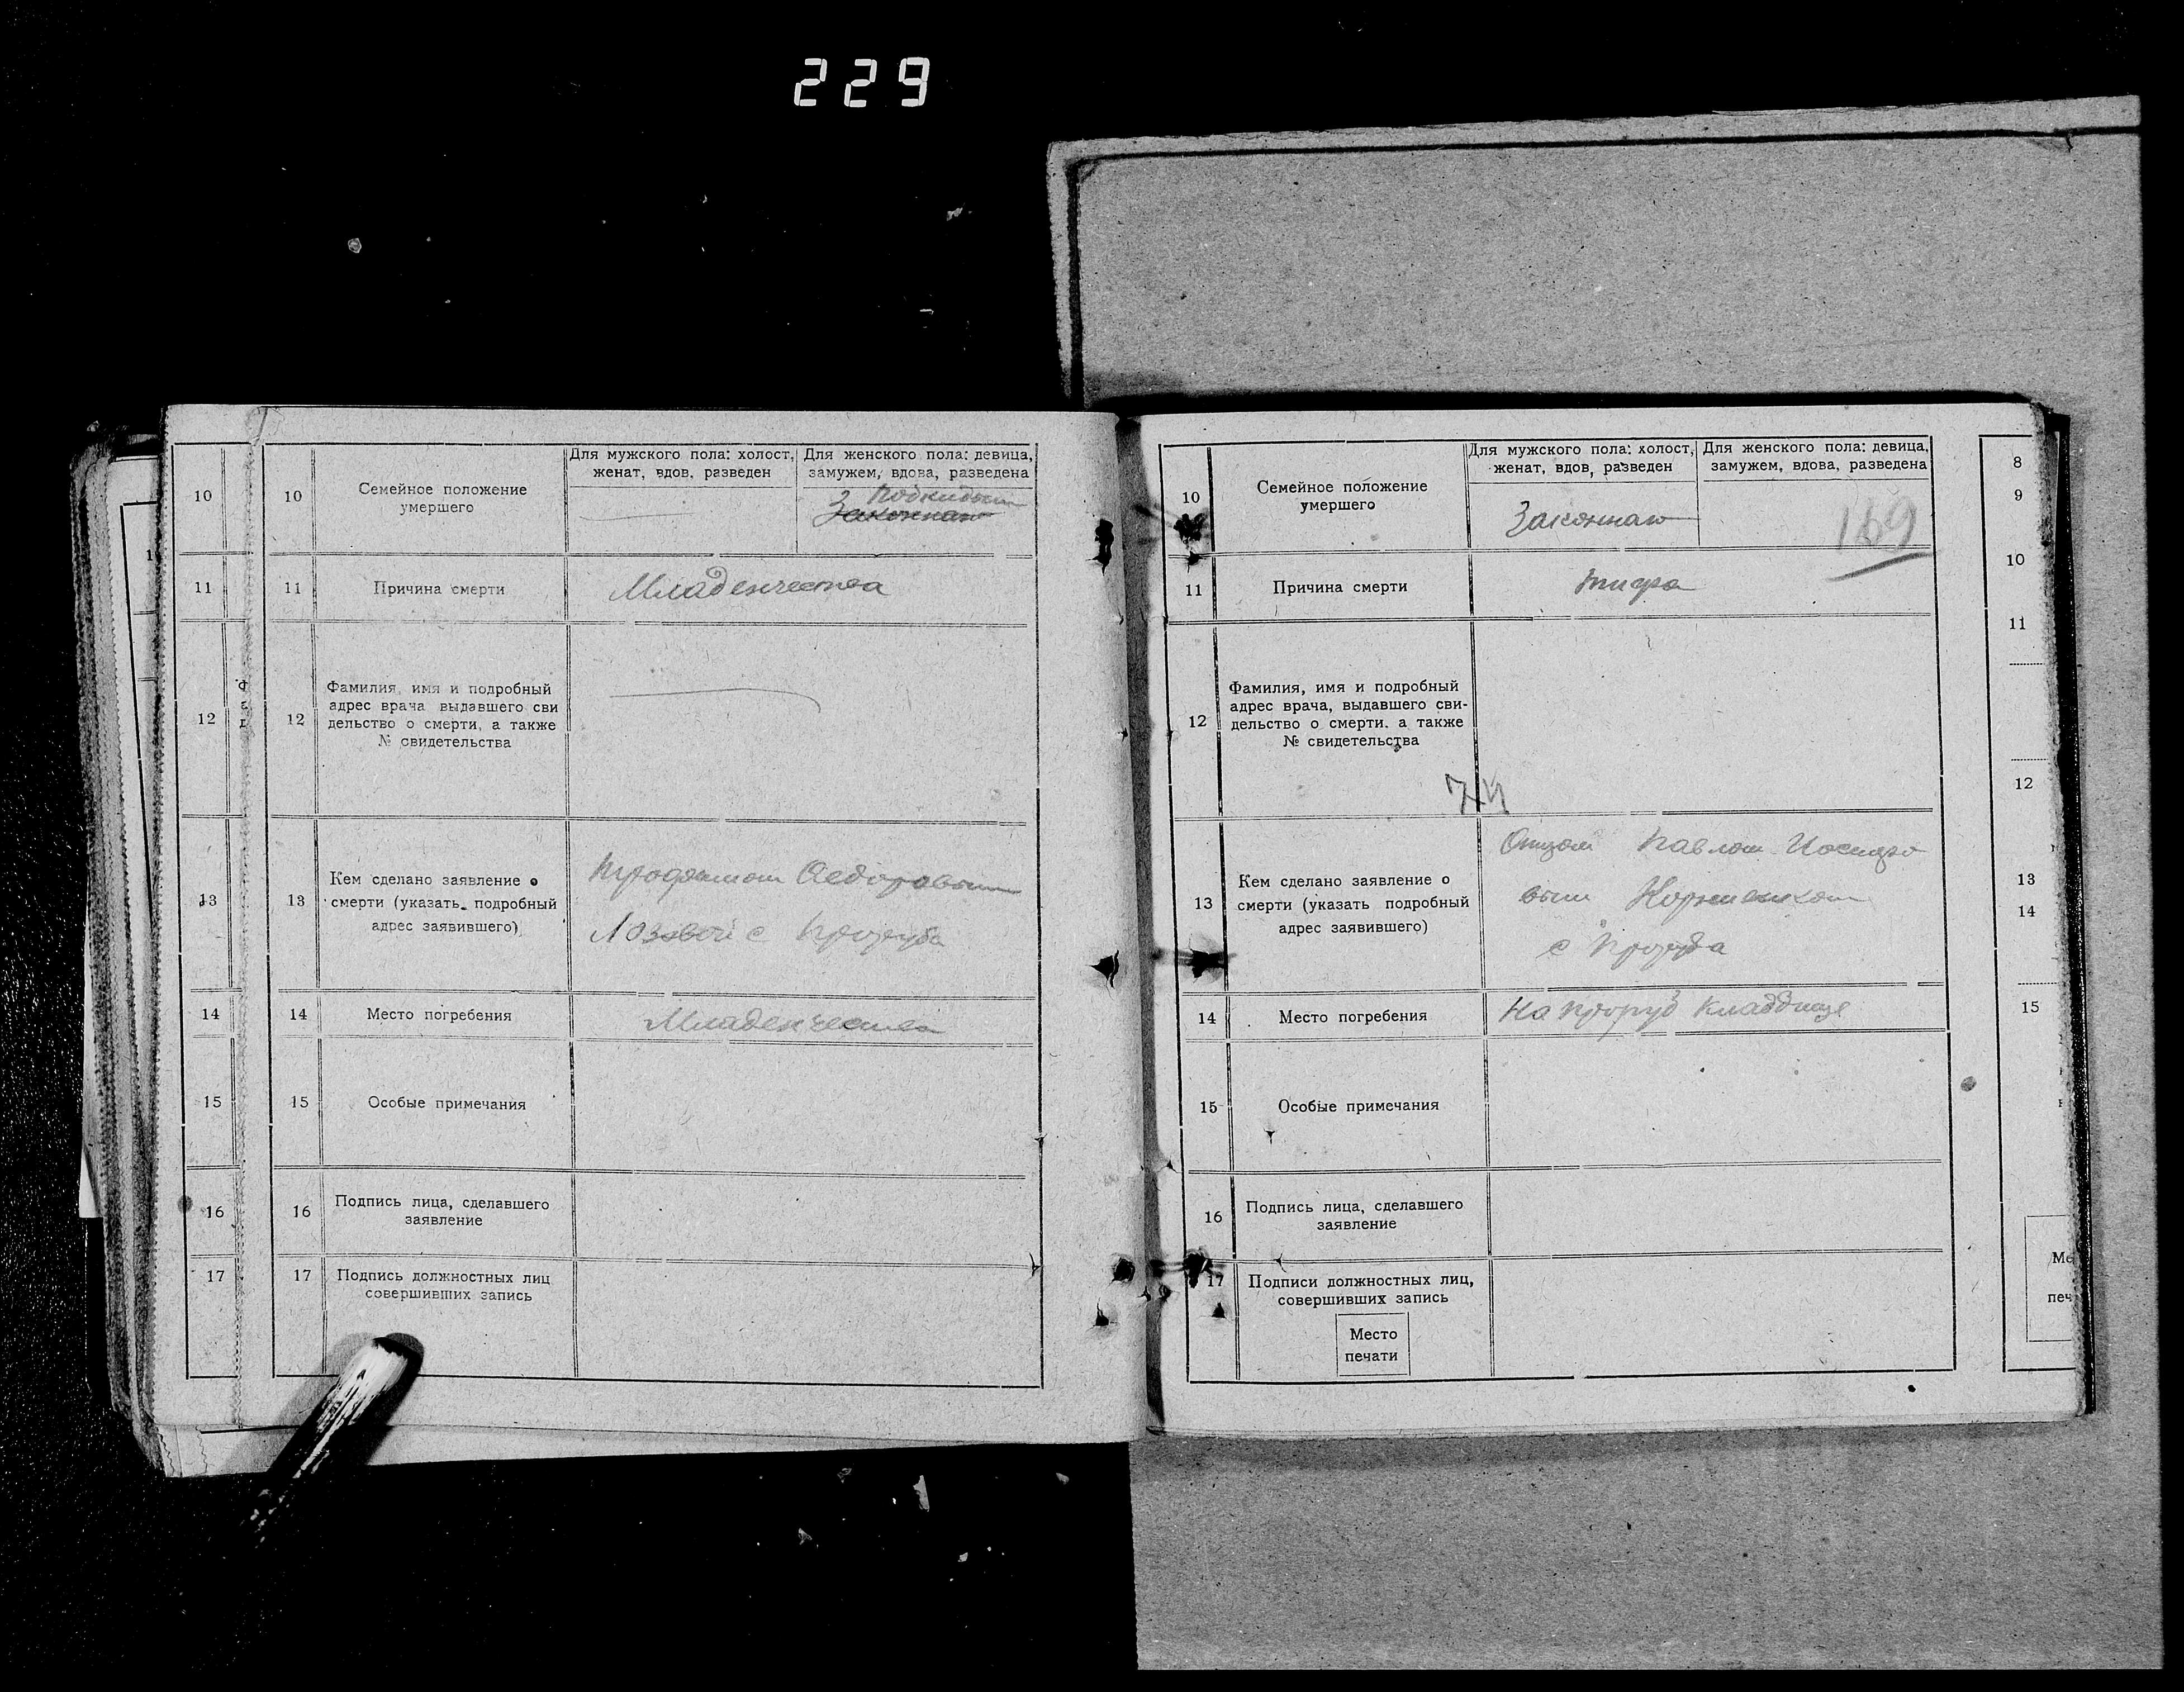 229
10
11
12
13
14
15
16
17
10 Семейное положение умершего
Для мужского пола: холост, женат, вдов, разведен
Для женского пола: девица, замужем, вдова, разведена
11 Причина смерти
Младенчества
12 Фамилия, имя и подробный
адрес врача выдавшего сви
дельство о смерти, а также
№ свидетельства
13 Кем сделано заявление о
смерти (указать подробный
адрес заявившего)
Лозовой с
14 Место погребения
Младенчества
15 Особые примечания
16 Подпись лица, сделавшего
заявление
17 Подпись должностных лиц
совершивших запись
10 Семейное положение
умершего
Для мужского пола: холост,
женат, вдов, разведен
Для женского пола: девица,
замужем, вдова, разведена
Законная
169
11 Причина смерти
тифа
12 Фамилия, имя и подробный
адрес врача, выдавшего сви-
дельство о смерти. а также
№ свидетельства
13 Кем сделано заявление о
смерти (указать подробный
адрес заявившего)
Отцом Павлом
вым
с
14 Место погребения
На кладбище
15 Особые примечания
16 Подпись лица, сделавшего
заявление
17 Подписи должностных лиц,
совершивших запись
Место
печати
8
9
10
11
12
13
14
15
Ме
печ